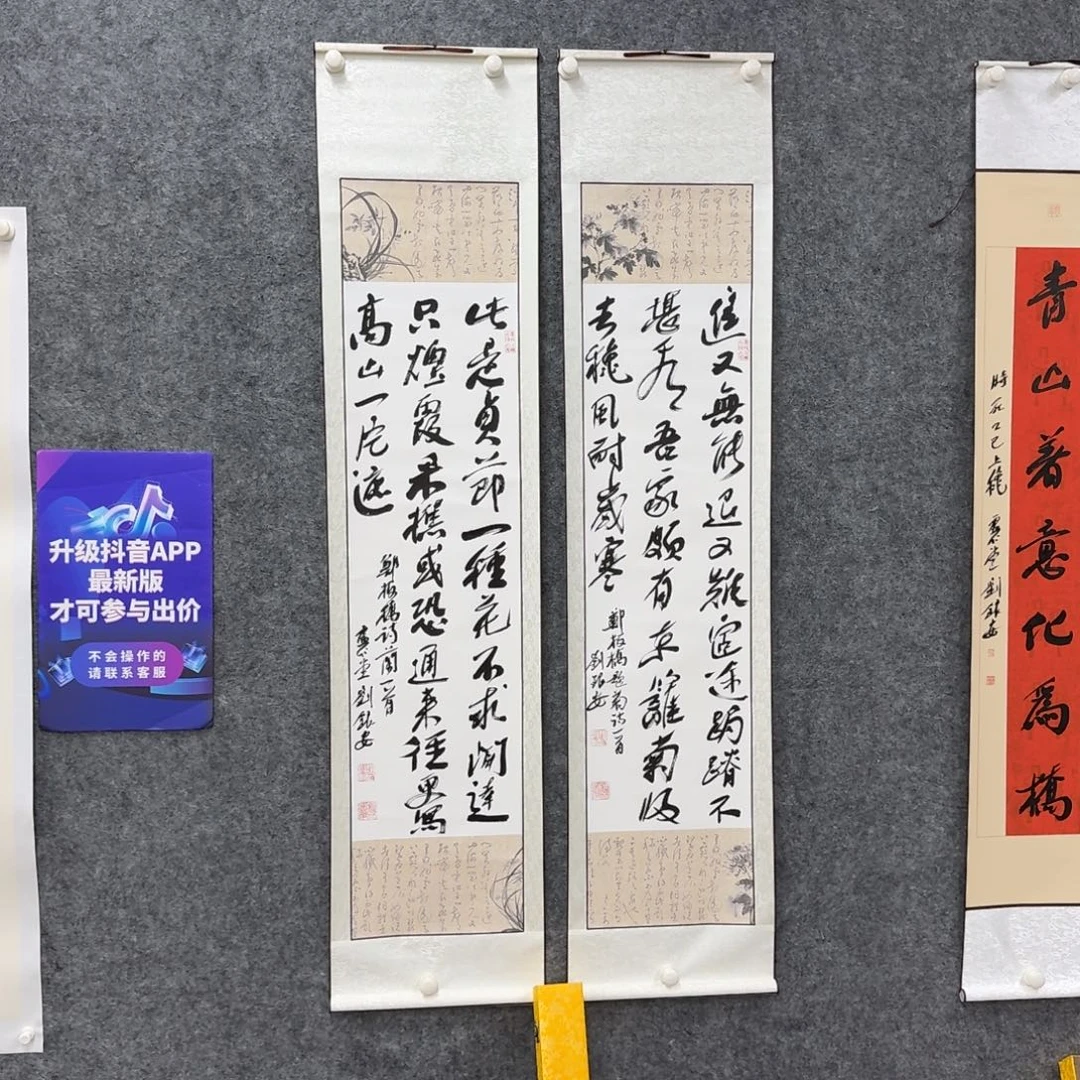 升级抖音APP
最新版
才可参与出价
不会操作的
请联系客服
青山着意化為橋
時在乙巳上穐 劉銀安
進又無能退又難宦途跼蹐不
堪看吾家頗有東籬菊歸
去穐風耐歲寒
鄭板橋題菊詩一首
劉銀安
此是貞節一種花不求聞達
只煙霞采樵或恐通來徑更寫
高山一片遮
鄭板橋詩蘭一首
堂劉銀安